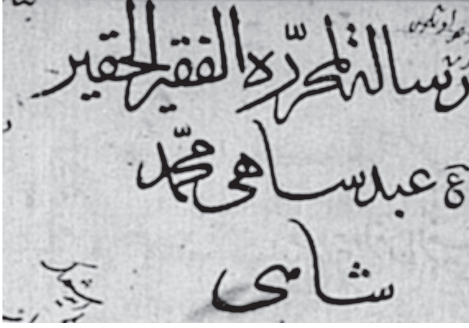 رسالة لمحرّره الفقير الحقير
عبد ساهى محمّد
شامى